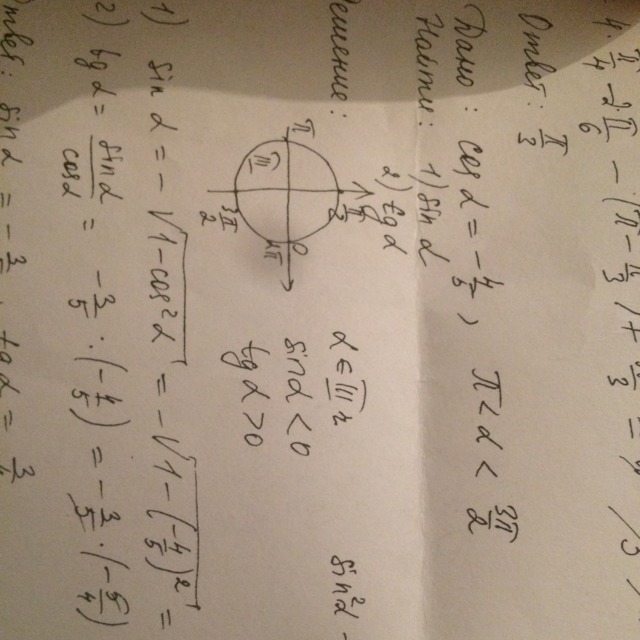 Ответ: π/3
Дано: cos α = -4/5, π < α < 3π/2
Найти: 1) sin α
2) tg α
Решение:
π/2
π 0
III 2π
3π/2
α ∈ III ч
sin α < 0
tg α > 0
sin²α
1) sin α = -√(1-cos²α) = -√(1-(-4/5)²) =
2) tg α = sin α/cos α = -3/5 : (-4/5) = -3/5 · (-5/4)
Ответ: sin α = -3/5, tg α = 3/4